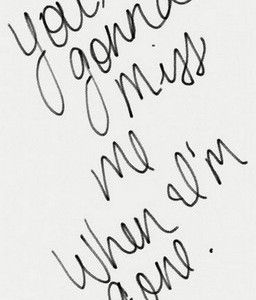 you're
gonna
miss
me
when I'm
gone.